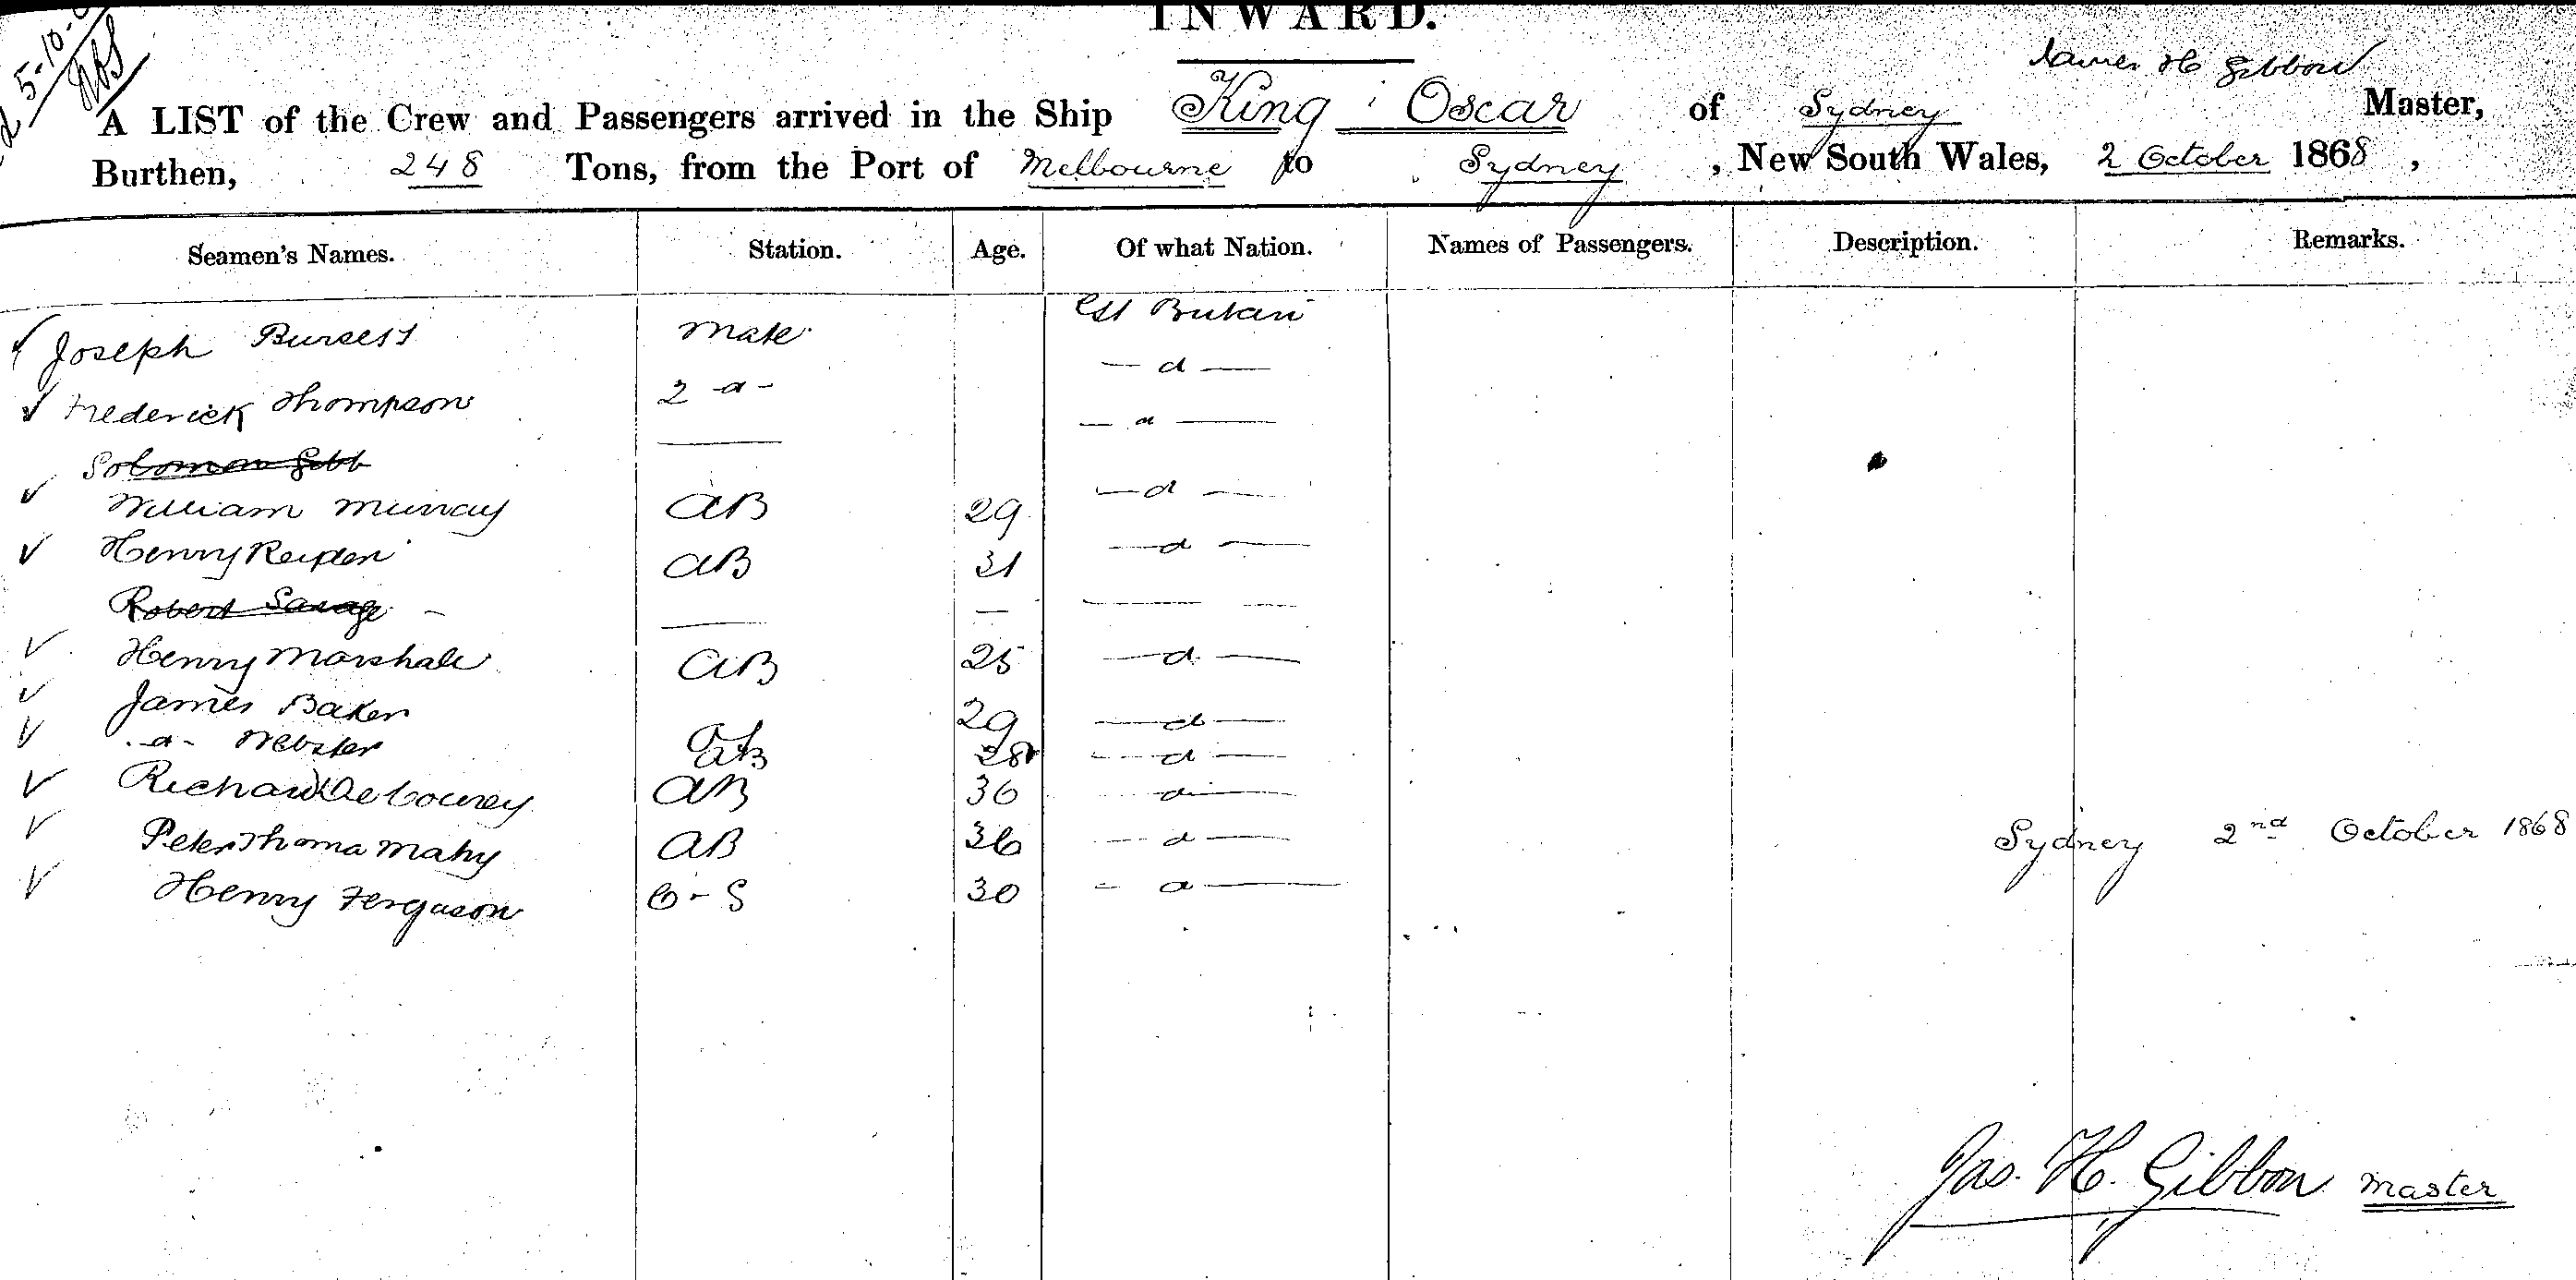 INWARD.
d 5-10-6
James H Gibbon
A LIST of the Crew and Passengers arrived in the Ship King Oscar of Sydney Master,
Burthen, 248 Tons, from the Port of Melbourne to Sydney, New South Wales, 2 October 1868,
Seamen's Names. Station. Age. Of what Nation. Names of Passengers. Description. Remarks.
✓ Joseph Burgess Mate Gt Britain
✓ Frederick Thompson 2 -d- — d —
Solomon Gibb — — d —
✓ William Murray AB 29 — d —
✓ Henry AB 31 — d —
Robert Savage - — — — —
✓ Henry Marshall AB 25 — d —
✓ James Baker AB 29 — d —
✓ -d- Webster AB 28 — d —
✓ Richard De Courcy AB 36 — d —
✓ Peter Thoma Mahy AB 36 — d —
✓ Henry Ferguson O-S 30 - d —
Sydney 2nd October 1868
Jas. H. Gibbon Master